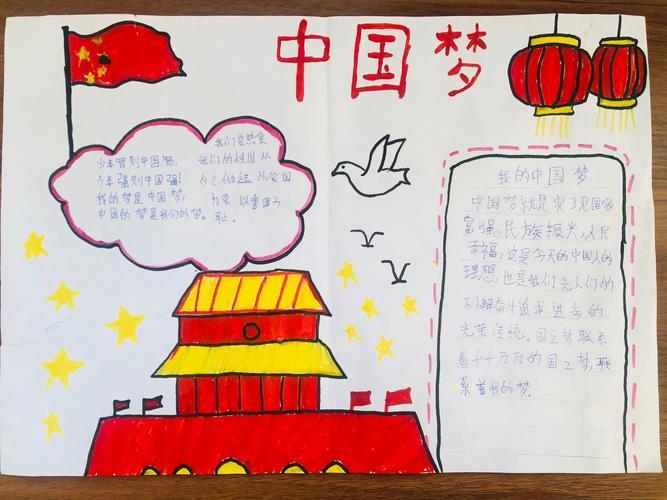 中国梦
少年智则中国智,
少年强则中国强!
我的梦是中国梦,
中国的梦是我们的梦。
我们要热爱
我们的祖国从
自己做起从爱国
为荣 以害国为
耻。
我的中国梦
中国梦就是实现国家
富强、民族振兴、人民
幸福,这是今天的中国人的
理想,也是我们先人们的
不懈奋斗追求进步的
光荣传统。国之梦联系
着千千万万的国之梦,联
系着我的梦